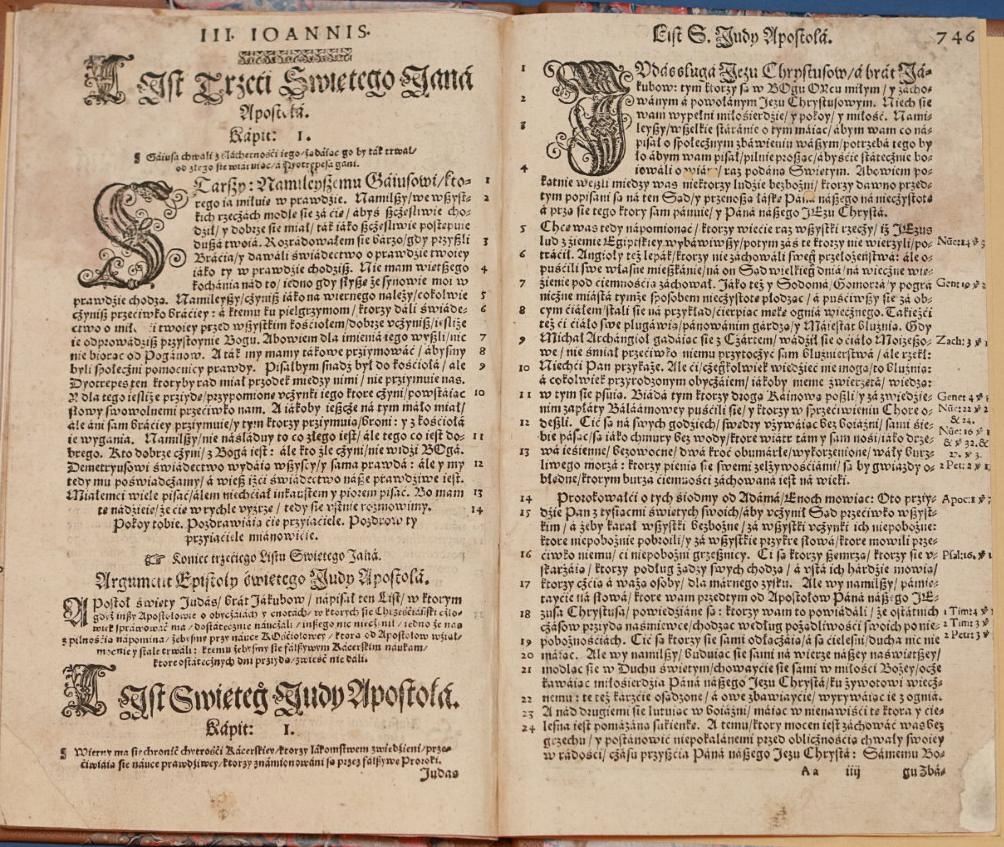 III. IOANNIS.
List Trzeci Swiętego Janá
Apostołá.
Kápit: 1.
¶ Gáiusá chwali z ślácherności iego/żądáiąc go by ták trwał/
od złego się wiáruiąc/á Dyotrepesá gáni.
STárszy: Namileyszemu Gáiusowi/kto-
rego ia miłuię w prawdzie. Namilszy/we wszyst-
kich rzeczách modlę się zá cię/ábyś szczęśliwie cho-
dził/y dobrze się miał/ták iáko szczęśliwie postępuie
duszá twoiá. Rozrádowałem się bárzo/gdy przyszli
Bráciá/y dawáli świádectwo o prawdzie twoiey
iáko ty w prawdzie chodzisz. Nie mam więtszego
kochánia nád to/iedno gdy słyszę że synowie moi w
prawdzie chodzą. Namileyszy/czynisz iáko ná wiernego należy/cokolwie
czynisz przeciwko bráciey: á k temu ku pielgrzymom/ktorzy dáli świáde-
ctwo o miłości twoiey przed wszystkim kościołem/dobrze uczynisz/iesliże
ie odprowádzisz przystoynie Bogu. Abowiem dla imienia iego wyszli/nic
nie biorąc od Pogánow. A ták my mamy tákowe przyimowáć/ábysmy
byli społeczni pomocnicy prawdy. Pisałbym snadź był do kościołá/ále
Dyotrepes ten ktoryby rad miał przodek miedzy nimi/nie przyimuie nas.
A dla tego iesliże przyidę/przypomionę uczynki iego ktore czyni/powstáiąc
słowy swowolnemi przeciwko nam. A iákoby ieszcze ná tym máło miał/
ále áni sam bráciey przyimuie/y tym ktorzy przyimuią/broni: y z kościołá
ie wygánia. Namilszy/nie násláduy to co złego iest/ále tego co iest do-
brego. Kto dobrze czyni/z Bogá iest: ále kto źle czyni/nie widzi BOgá.
Demetryusowi świádectwo wydáią wszyscy/y sámá prawdá: ále y my
tedy mu poświadczamy/á wiesz iżci świádectwo násze prawdziwe iest.
Miałemci wiele pisáć/álem niechciał inkaustem y piorem pisáć. Bo mam
tę nádzieię/że cię w rychle uyrzę/tedy się ustnie rozmowimy.
Pokoy tobie. Pozdrawiáią cię przyiaciele. Pozdrow ty
przyiaciele miánowicie.
☞ Koniec trzeciego Listu Swiętego Janá.
Argument Epistoły świętego Judy Apostołá.
APostoł święty Judas/brát Jákubow/nápisał ten List/w ktorym
List Swięteg Judy Apostołá.
Kápit: 1.
¶ Wierny ma się chronić chytrości Kácerskiey/ktorzy łákomstwem zwiedzieni/prze-
ciwiáią się náuce prawdziwey/ktorzy známionowáni są przez fałszywe Proroki.
Judas
List S. Judy Apostołá.
746
IVdás sługá Jezu Chrystusow/á brát Já-
kubow: tym ktorzy są w BOgu OYcu miłym/y zácho-
wánym á powołánym Jezu Chrystusowym. Niech się
wam wypełni miłosierdzie/y pokoy/y miłość. Nami-
leyszy/wszelkie stáránie o tym máiąc/ábym wam co ná-
pisał o społecznym zbáwieniu wászym/potrzebá tego by
ło ábym wam pisał/pilnie prosząc/ábyście státecznie bo-
iowáli o wiárę/raz podáną Swiętym. Abowiem po-
kątnie weszli miedzy was niektorzy ludzie bezbożni/ktorzy dawno przed-
tym popisáni są ná ten Sąd/y przenoszą łáskę Páná nászego ná nieczystotę
á przą się tego ktory sam pánuie/y Páná nászego JEzu Chrystá.
Chcę was tedy nápomionąć/ktorzy wiecie raz wszystki rzeczy/iż JEzus
lud z ziemie Egiptskiey wybáwiwszy/potym zás te ktorzy nie wierzyli/po-
trácił. Anioły też lepák/ktorzy nie záchowáli swego przełożeństwá: ále o-
puścili swe własne mieszkánie/ná on Sąd wielkiego dniá/ná wieczne wię-
zienie pod ciemnością záchował. Jáko też y Sodomá/Gomorrá/y pográ
niczne miástá tymże sposobem nieczystotę płodząc/á puściwszy się zá ob-
cym ciáłem/stáli się ná przykład/cierpiąc mękę ogniá wiecznego. Tákieżci
też ci ciáło swe plugáwią/pánowánim gárdzą/y Máiestat bluźnią. Gdy
Michał Archányoł gadáiąc się z Czártem/wadził się o ciáło Moizeszo-
we/nie śmiał przeciwko niemu przytoczyć sam bluźnierstwá/ále rzekł:
Niechći Pan przykaże. Ale ci/czegokolwiek wiedzieć nie mogą/to bluźnią:
á cokolwiek przyrodzonym obyczáiem/iákoby nieme źwierzętá/wiedzą:
w tym się psuią. Biádá tym ktorzy drogą Káinową poszli/y zá zwiedzie-
nim zapłáty Báláámowey puścili się/y ktorzy w sprzeciwieniu Chore o-
deszli. Ci są ná swych godziech/swádry używáiąc bez boiáźni/sámi sie-
bie pásąc/są iáko chmury bez wody/ktore wiátr tám y sám nosi/iáko drze-
wá iesienne/bezowocne/dwá kroć obumárłe/wykorzenione/wáły burz-
liwego morzá: ktorzy pienią się swemi zelżywościámi/są by gwiazdy o-
błędne/ktorym burza ciemności záchowána iest ná wieki.
Prorokowałći o tych siodmy od Adámá/Enoch mowiąc: Oto przyi-
dzie Pan z tysiącmi świętych swoich/áby uczynił Sąd przeciwko wszyst-
kim/á żeby karał wszystki bezbożne/zá wszystki uczynki ich niepobożne:
ktore niepobożnie pobroili/y zá wszystkie przykre słowá/ktore mowili prze-
ciwko niemu/ci niepobożni grzesznicy. Ci są ktorzy szemrzą/ktorzy się u-
skarżáią/ktorzy podług żądzy swych chodzą/á ustá ich hárdzie mowią/
ktorzy czcią á ważą osoby/dla márnego zysku. Ale wy namilszy/pámię-
taycie ná słowá/ktore wam przedtym od Apostołow Páná nászego JE-
zusá Chrystusá/powiedziáne są: ktorzy wam to powiádáli/że ostátnich
czásow przyidą náśmiewce/chodząc według pożądliwości swoich po nie-
pobożnościách. Ci są ktorzy się sámi odłączáią/á są cielesni/duchá nic nie
máiąc. Ale wy namilszy/buduiąc się sámi ná wierze nászey naświętszey/
modląc się w Duchu świętym/chowaycie się sámi w miłości Bożey/ocze
kawáiąc miłosierdzia Páná nászego Jezu Chrystá/ku żywotowi wiecz-
nemu: á te też karzcie osądzone/á owe zbawiaycie/wyrywáiąc ie z ogniá.
A nád drugiemi się lutuiąc w boiáźni/máiąc w nienawiści tę ktora y cie-
lesna iest pomázána sukienkę. A temu/ktory mocen iest záchowáć was bez
grzechu/y postánowić niepokalánemi przed oblicznością chwały swoiey
w rádości/czásu przyszcia Páná nászego Jezu Chrystá: Sámemu Bo-
Aa iiij gu Zbá-